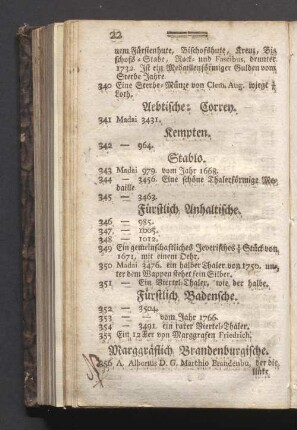 22
nem Fürstenhute, Bischofshute, Kreuz, Bi-
schofs-Stabe, Rack- und Fascibus, drunter
1732. Ist ein Medaillenförmiger Gulden vom
Sterbe Jahre.
340 Eine Sterbe-Münze von Clem. Aug. wiegt
Loth.
Aebtische: Correy.
341 Madai 3431.
Kempten.
342 — 964.
Stablo.
343 Madai 979. vom Jahr 1668.
344 — 3456. Eine schöne Thalerförmige Me-
daille
345 — 3463.
Fürstlich Anhaltische.
346 — 985.
347 — 1005.
348 — 1010.
349 Ein gemeinschaftliches Jeverisches Stück von
1671, mit einem Oehr.
350 Madai 3476. ein halber Thaler von 1750. un-
ter dem Wappen stehet fein Silber.
351 — Ein Viertel-Thaler, wie der halbe.
Fürstlich Badensche.
352 — 3504.
353 — — vom Jahr 1766.
354 — 3491. ein rarer Viertel-Thaler.
355 Ein 12 Xer von Marggrafen Friedrich.
Marggräflich Brandenburgische.
356 A. Albertus D. G. Marchio Brandenbu, der die
linke